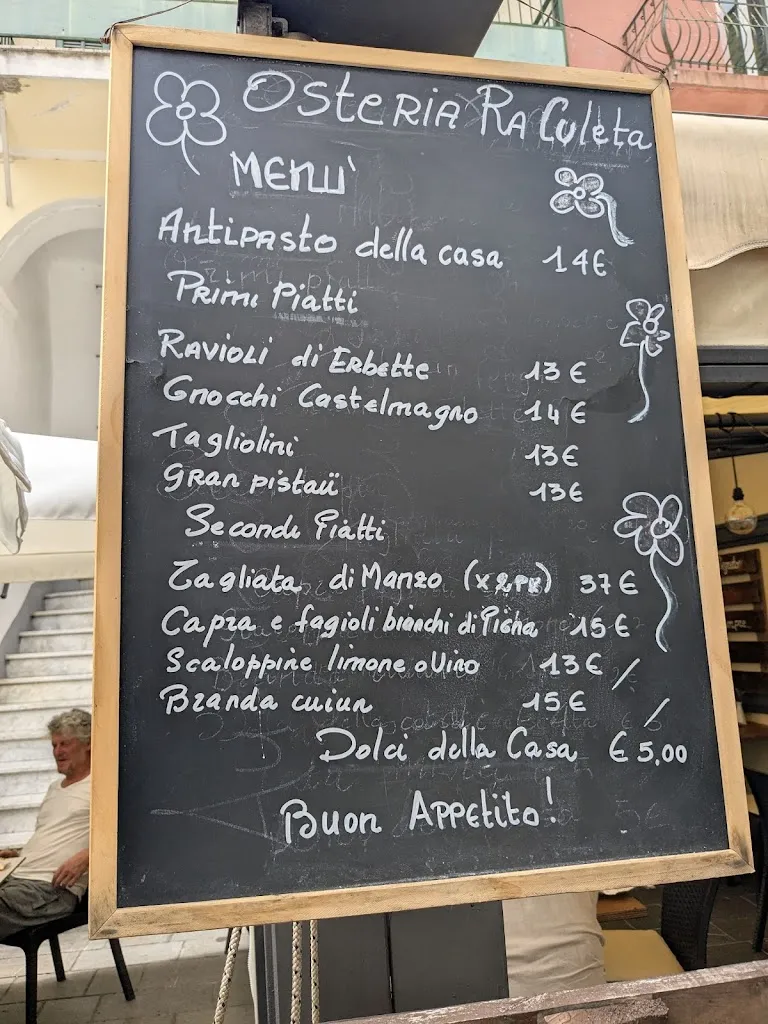 Osteria Ra Culeta
Menu'
Antipasto della casa 14€
Primi Piatti
Ravioli di Erbette 13€
Gnocchi Castelmagno 14€
Tagliolini 13€
Gran pistaü 13€
Secondi Piatti
Tagliata di Manzo (x2PX) 37€
Capra e fagioli bianchi di Pigna 15€
Scaloppine limone o Vino 13€ /
Branda cuiun 15€ /
Dolci della Casa € 5,00
Buon Appetito!